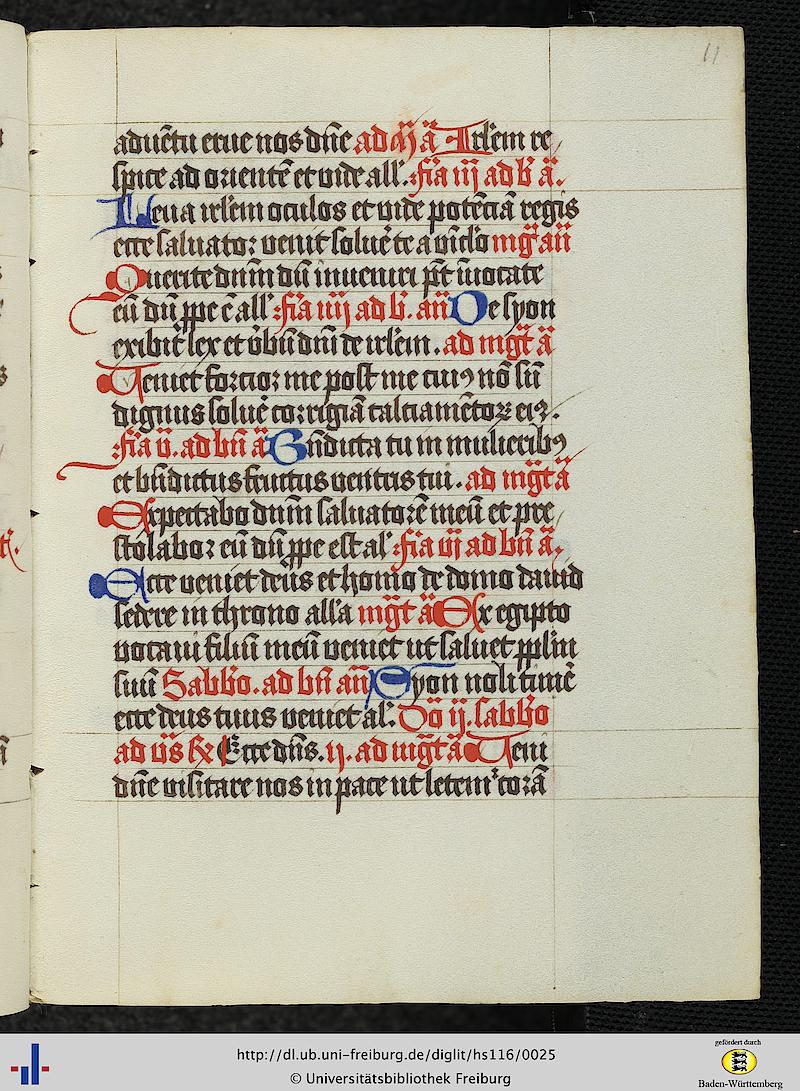 11
aduētu erue nos dn̄e ad m̄ ā Irl'em re
spice ad orientē et vide all'. fr̄ia iij ad b' ā.
Leua irl'em oculos et vide potēciā regis
ecce saluator venit soluē te a vīclo mḡ an̄
Querite dnm̄ dū inueniri pt̄ īuocate
eū dū ꝓpe ē all' fr̄ia iiij ad b'. an̄ De syon
exibit lex et v̄bū dn̄i de irl'em. ad mgt̄ ā
Ueniet forcior me post me cuiꝯ nō sū
dignus soluē corrigiā calciamētoꝝ eiꝯ.
fr̄ia v. ad bn̄ ā Bn̄dicta tu in mulieribꝯ
et bn̄dictus fructus uentris tui. ad mgt̄ ā
Expectabo dnm̄ saluatorē meū et pre
stolabor eū dū ꝓpe est al' fr̄ia vi ad bn̄ ā.
Ecce ueniet deus et homo de domo dauid
sedere in throno all'a mgt̄ ā Ex egipto
vocaui filiū meū veniet ut saluet ppl'm
suū Sabb'o. ad bn̄ an̄ Syon noli timē
ecce deus tuus veniet al'. Dō ij. sabb'o
ad v̄s ℞ Ecce dn̄s. v. ad mgt̄ ā Ueni
dn̄e visitare nos in pace ut letem' corā
http://dl.ub.uni-freiburg.de/diglit/hs116/0025
© Universitätsbibliothek Freiburg
gefördert durch
Baden-Württemberg